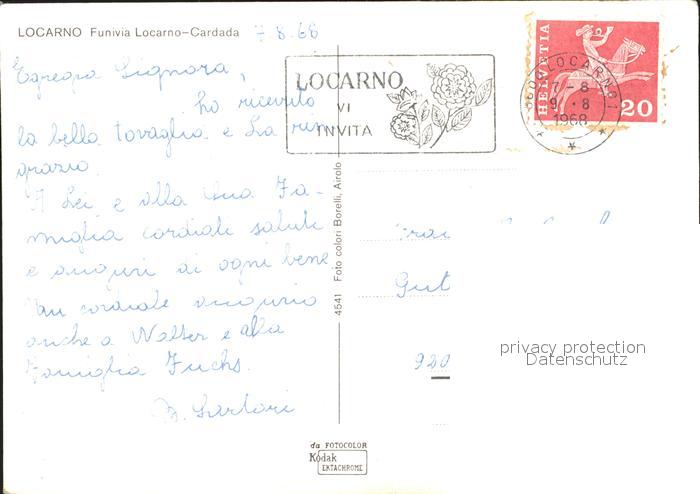 LOCARNO Funivia Locarno-Cardada
7.8.68
Egregia Signora,
ho ricevuto
la bella tovaglia e La rin
grazio.
A Lei e alla Sua Fa-
miglia cordiali saluti
e auguri di ogni bene
Un cordiale augurio
anche a Walter e alla
Famiglia Fuchs.
B. Sartori
LOCARNO
VI
INVITA
6600 LOCARNO 1
7-8
9.-8
1968
HELVETIA
20
4541 Foto colori Borelli, Airolo
Frau
Gut
920
privacy protection
Datenschutz
da FOTOCOLOR
Kodak
EKTACHROME